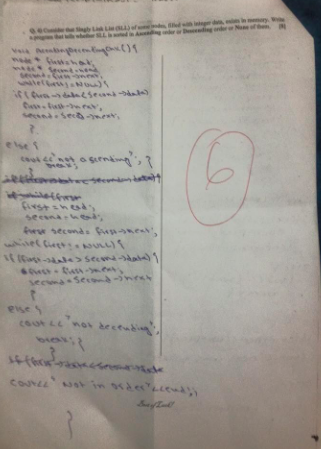 Q. 4) Consider that Singly Link List (SLL) of some nodes, filled with integer data, exists in memory. Write
a program that tells whether SLL is sorted in Ascending order or Descending order or None of them. (8)
void AscendingDescending() {
node * first=head;
node * second=head;
second=first->next;
while(first!=NULL){
if (first->data<second->data)
first=first->next;
second=second->next;
}
else {
cout<<"not ascending"; }
break;
}
first=head;
second=head;
second=first->next;
while(first!=NULL){
if(first->data>second->data){
first=first->next;
second=second->next
}
else {
cout<<"not decending";
break; }
}
cout<<"Not in order"<<endl;
}
6